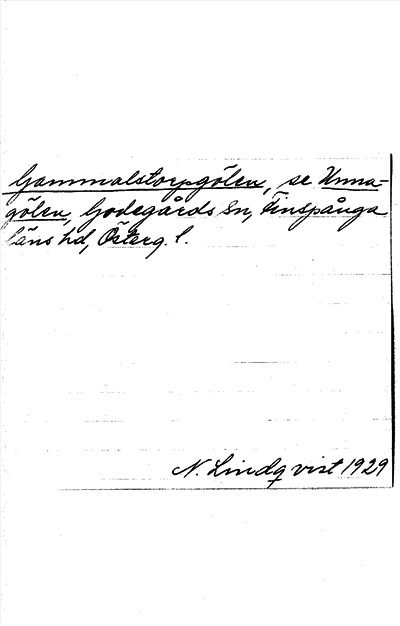 Gammalstorpgölen, se Unna-
gölen, Godegårds sn, Finspånga
läns hd, Österg. l.
N. Lindqvist 1929